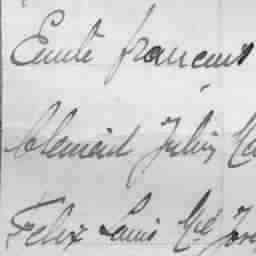 Emile francois
Clement Julien
Felix Louis